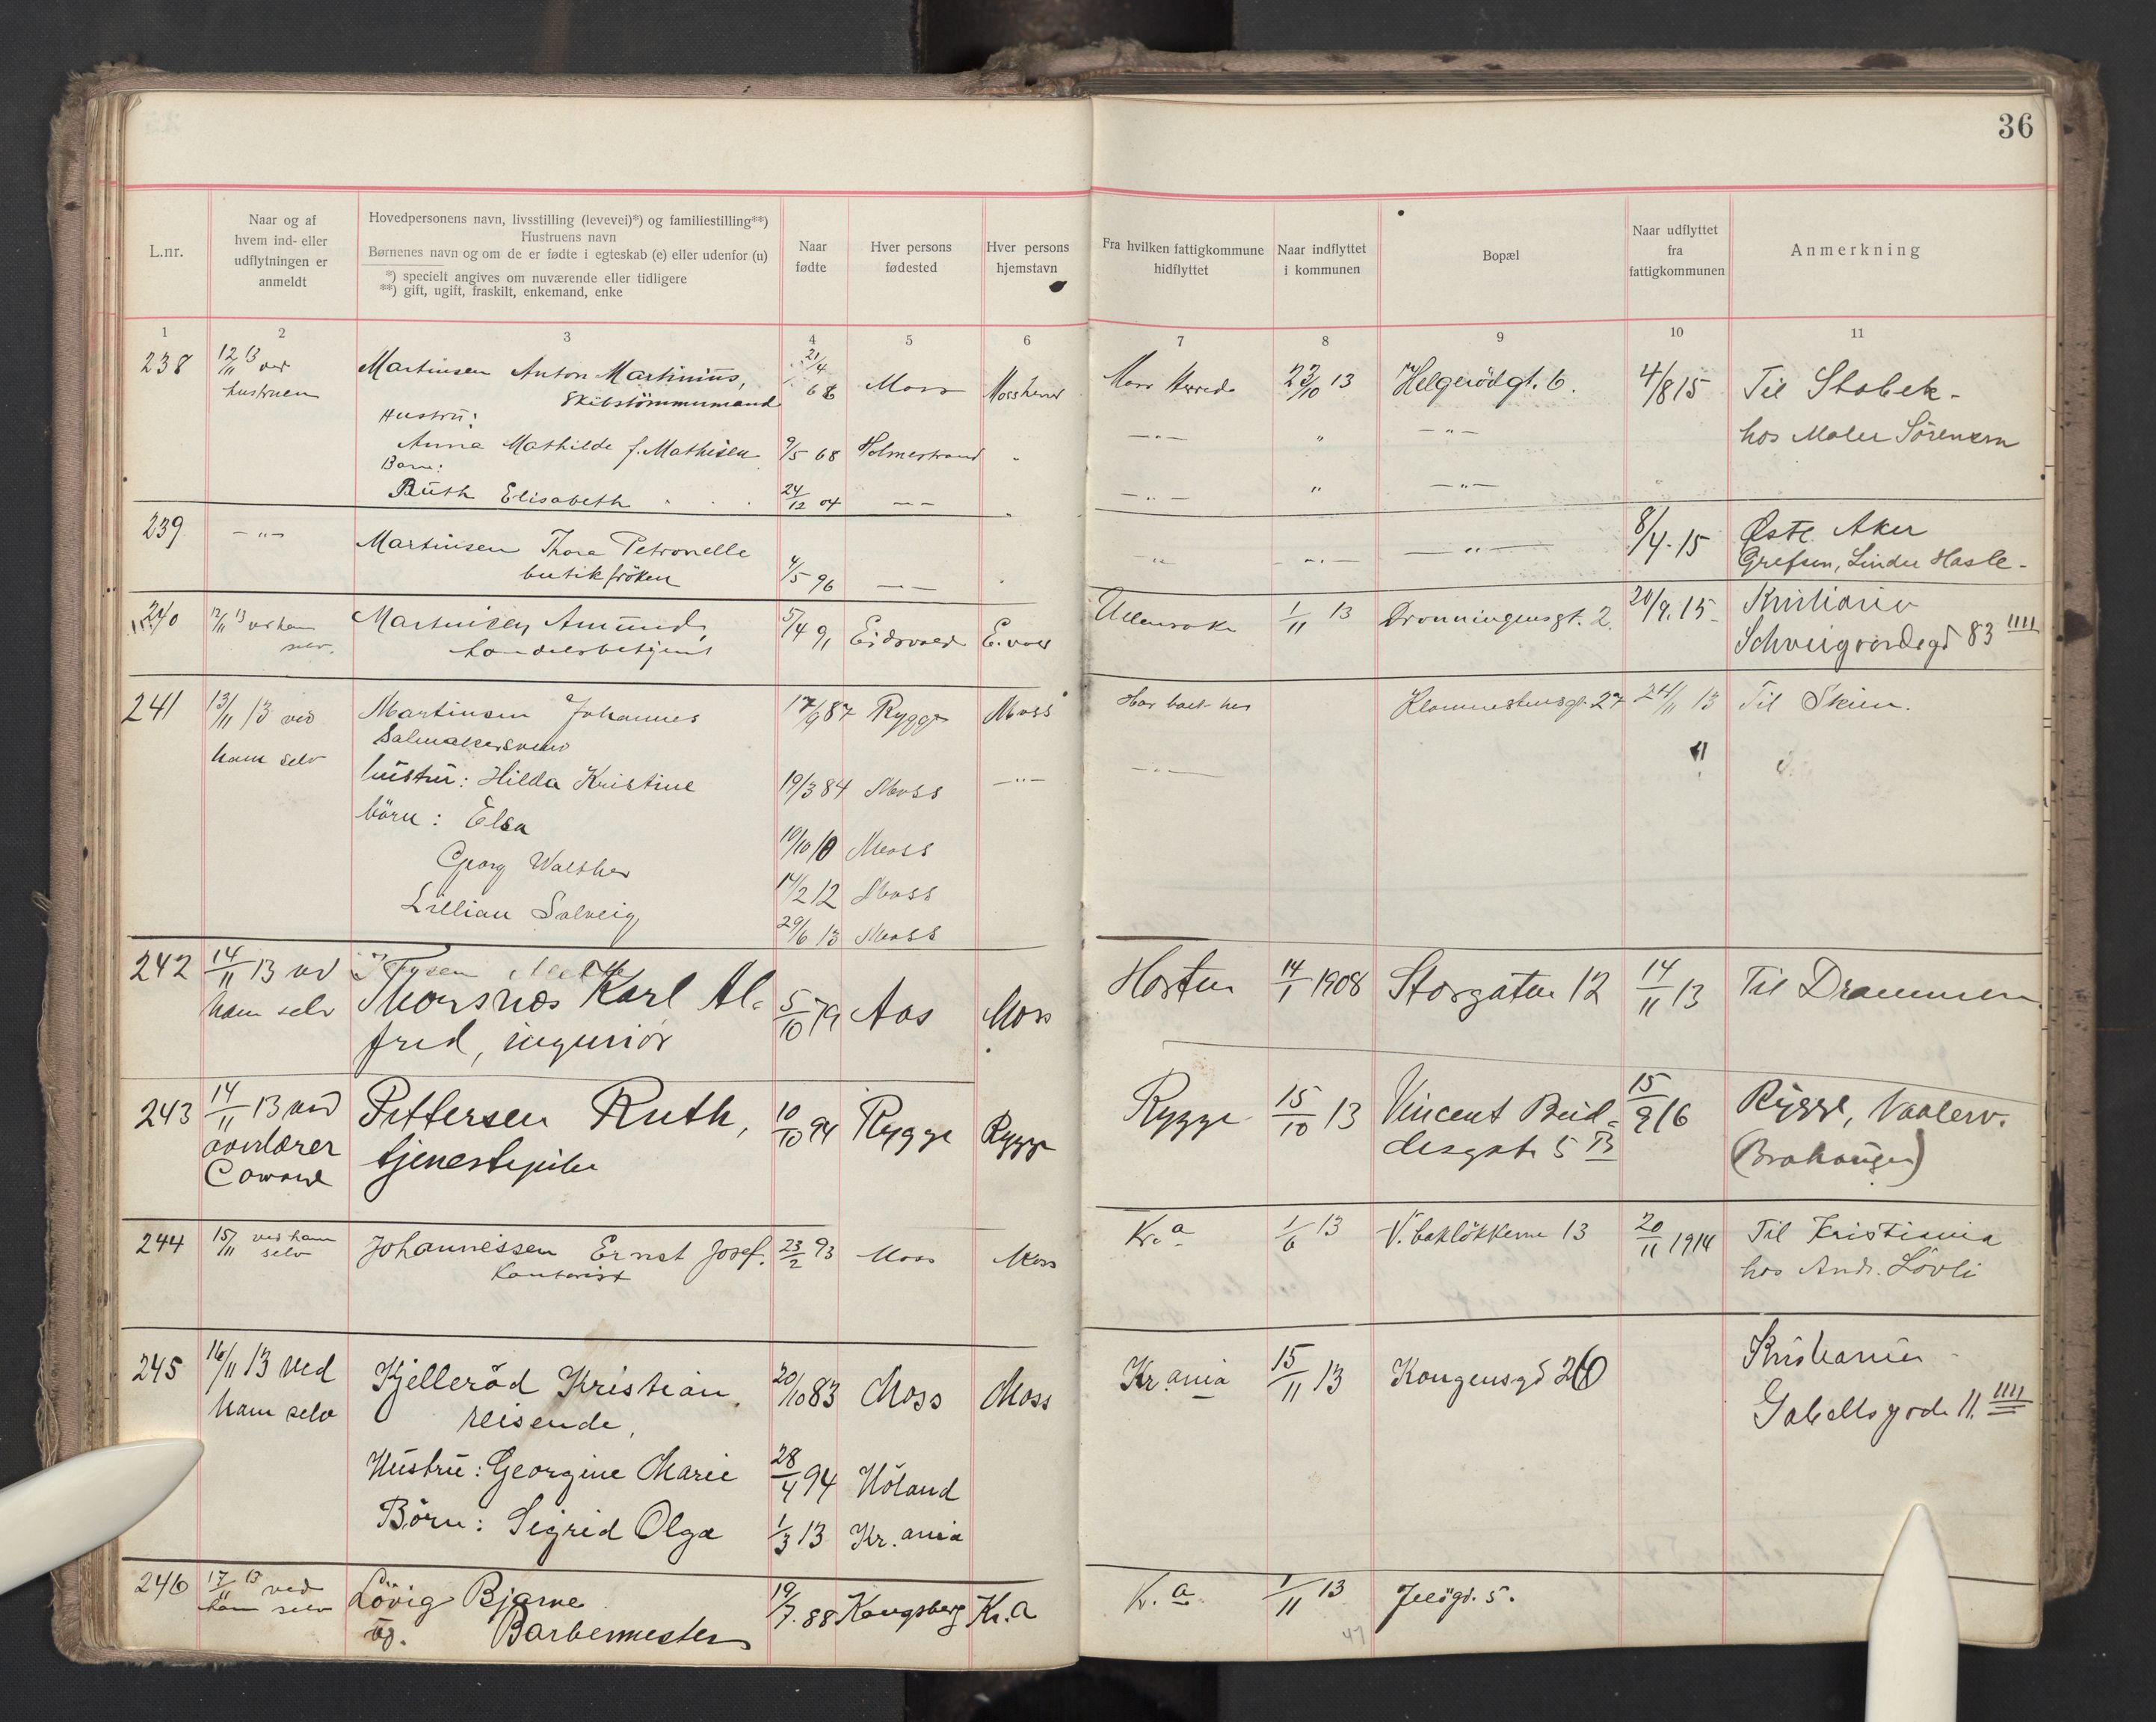 36
L.nr.
Naar og af
hvem ind- eller
udflytningen er
anmeldt
Hovedpersonens navn, livsstilling (levevei)*) og familiestilling**)
Hustruens navn
Børnenes navn og om de er fødte i egteskab (e) eller udenfor (u)
*) specielt angives om nuværende eller tidligere
**) gift, ugift, fraskilt, enkemand, enke
Naar
fødte
Hver persons
fødested
Hver persons
hjemstavn
Fra hvilken fattigkommune
hidflyttet
Naar indflyttet
i kommunen
Bopæl
Naar udflyttet
fra
fattigkommunen
Anmerkning
1 2 3 4 5 6 7 8 9 10 11
238 12/11 13 ved Martinsen Anton Martinius, 21/4 68 Moss Moss herred Moss Herred 23/10 13 Helgerödgt. 6. 4/8 15 Til Stabek-
hustruen Skibstömmermand
Hustrü:
Anna Mathilde f. Mathisen 9/5 68 Holmestrand " —"— " —"— hos Maler Sörensen
Barn:
Rüth Elisabeth 24/12 04 —— " —"— " —"—
239 —"— Martinsen Thora Petronelle 4/5 96 —— —"— —"— 8/4.15 Østr. Aker
butikfröken Grefsen, Linder Hasle-
240 12/11 13 ved ham Martinsen Amünd, 5/4 91 Eidsvold E.vold Ullensaker 1/11 13 Dronningensgt. 2. 20/9.15 Kristiania
selv. handelsbetjent Schweigaardsgd 83
241 13/11 13 ved Martinsen Johannes 17/9 87 Rygge Moss Har boet her 27 24/11 13 Til Skien.
ham selv Salmakersvend
hüstrü: Hilda Kristine 19/3 84 Moss —"— —"—
börn: Elsa 10/10 10 Moss
Georg Walther 14/2 12 Moss
Lillian Solveig 29/6 13 Moss
242 14/11 13 ved Thorsnæs Karl Al- 5/10 79 Aas Moss Horten 14/1 1908 Storgaten 12 14/11 13 Til Drammen
ham selv fred, ingeniör
243 14/11 13 ved Pettersen Ruth, 10/10 94 Rygge Rygge Rygge 15/10 13 Vincent Bud- 15/9 16 Rygge, Vaalerv.
overlærer tjenestepike desgate 5 B
244 15/11 ved ham Johannessen Ernst Josef. 23/2 93 Moss Moss Kr.a 1/6 13 V. baklökkerne 13 20/11 1914 Til Kristiania
selv Kontorist hos Andr. Lövli
245 16/11 13 ved Kjelleröd Kristian, 20/10 83 Moss Moss Kr.ania 15/11 13 Kongensgd 26 Kristiania
ham selv reisende, Gabelsgade 11.
Hüstrü: Georgine Marie 28/4 94 Höland
Börn: Sigrid Olga 1/3 13 Kr.ania
246 17/11 13 ved Lövig Bjarne 19/7. 88 Kongsberg Kr.a K.a 1/11 13 Jelögd. 5.
ham selv üg. Barbermester
47